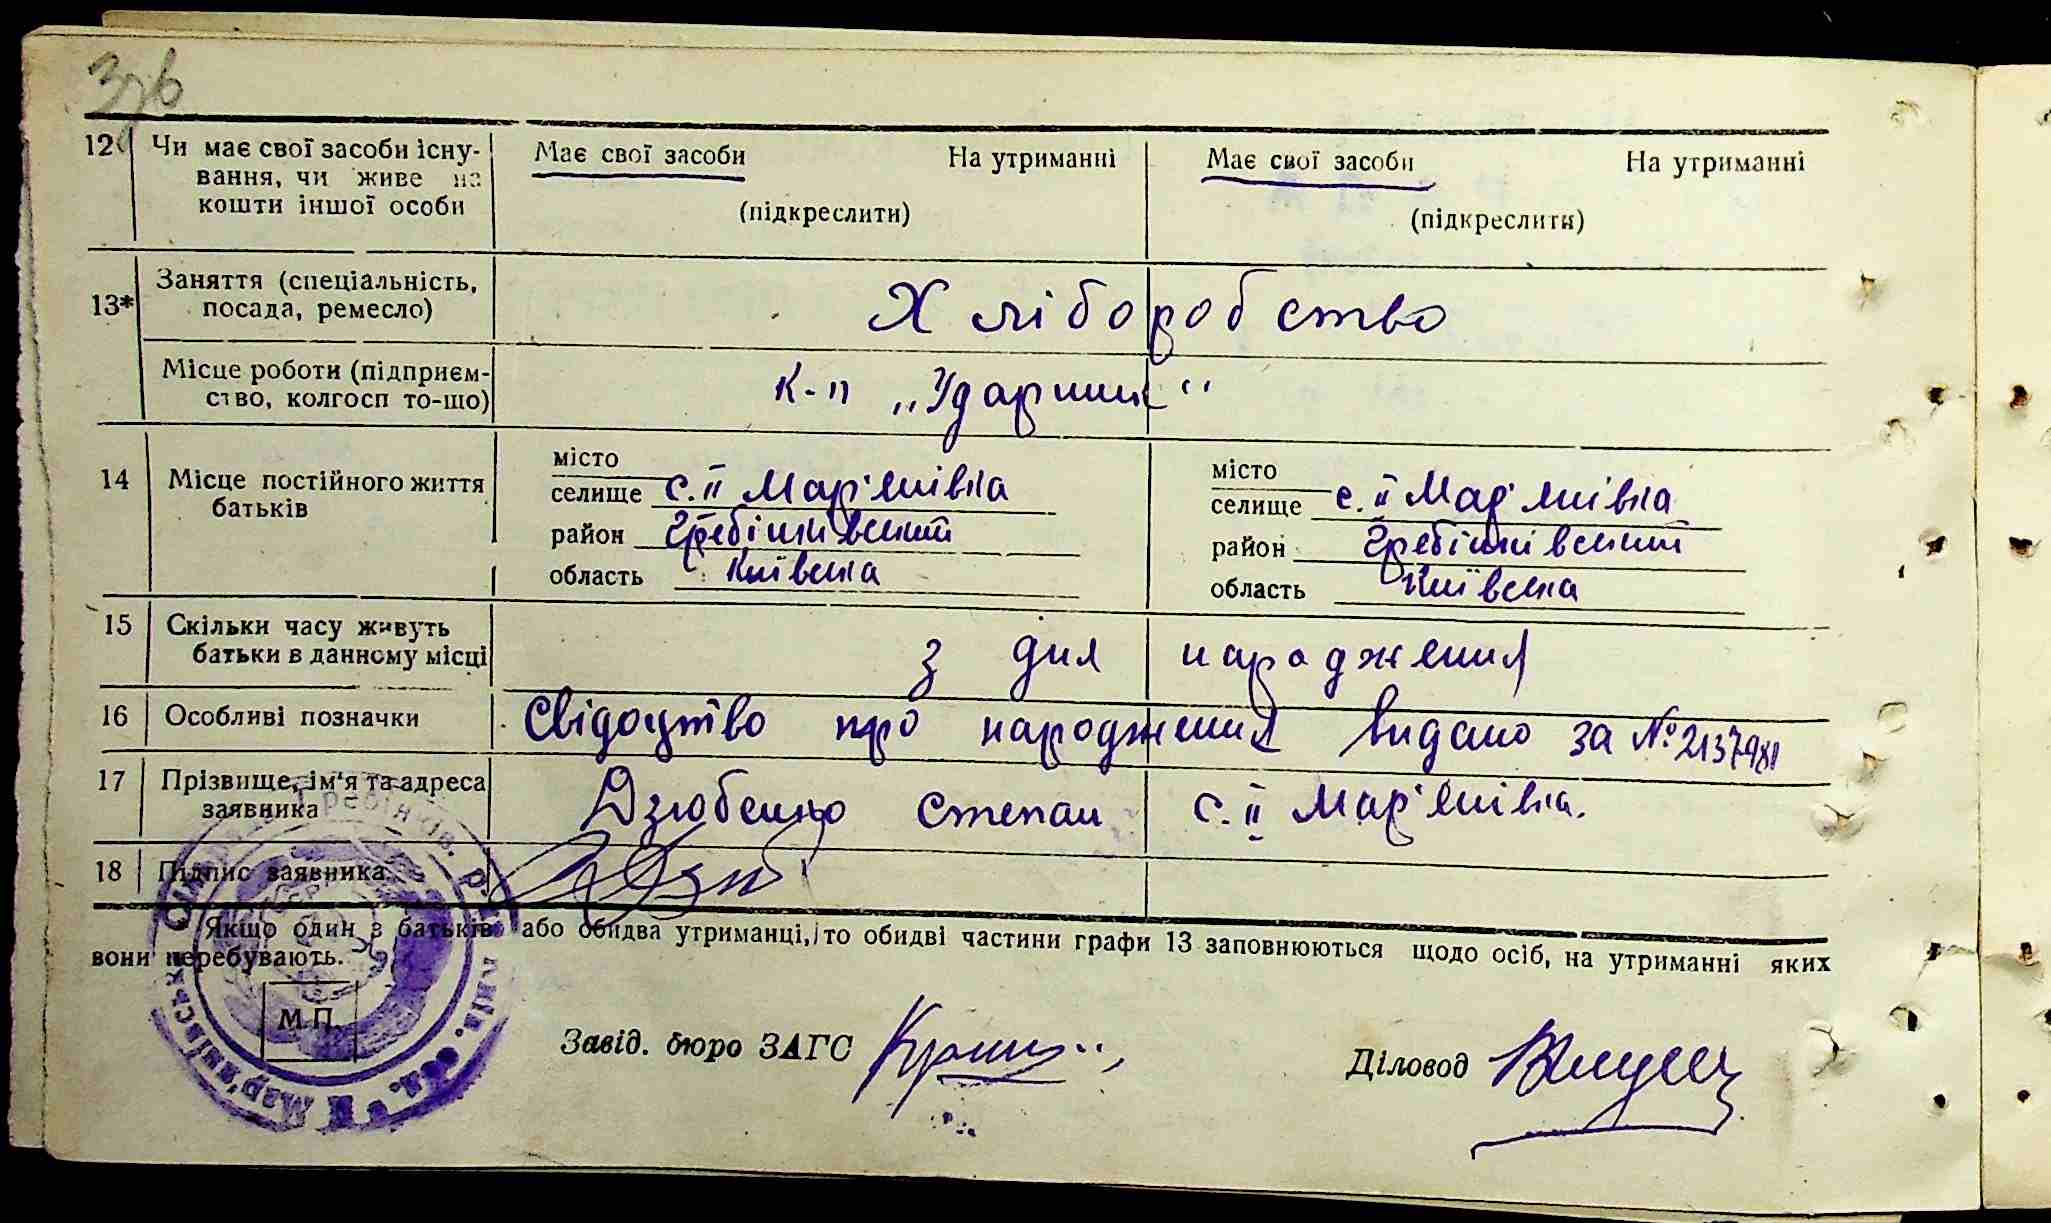 12 Чи має свої засоби існу-
вання, чи живе на
кошти іншої особи
Має свої засоби На утриманні
(підкреслити)
Має свої засоби На утриманні
(підкреслити)
13* Заняття (спеціальність,
посада, ремесло)
Хліборобство
Місце роботи (підприєм-
ство, колгосп то-що)
к-п „Ударник“
14 Місце постійного життя
батьків
місто
селище с. ІІ Мар'янівка
район Гребінківський
область Київська
місто
селище с. ІІ Мар'янівка
район Гребінківський
область Київська
15 Скільки часу живуть
батьки в данному місці
з дня народження
16 Особливі позначки
Свідоцтво про народження видано за № 2137981
17 Прізвище, ім'я та адреса
заявника
Дзюбенко Степан с. ІІ Мар'янівка.
18 Підпис заявника
Якщо один з батьків або обидва утриманці, то обидві частини графи 13 заповнюються щодо осіб, на утриманні яких
вони перебувають.
М.П.
Завід. бюро ЗАГС
Діловод